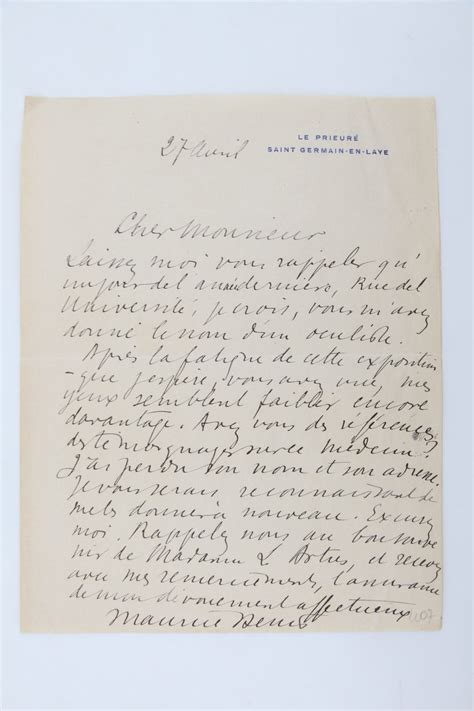 LE PRIEURÉ
SAINT GERMAIN-EN-LAYE
27 Avril
Cher Monsieur
Laissez moi vous rappeler qu'
un jour de l'année dernière, Rue de l'
Université, je crois, vous m'avez
donné le nom d'un oculiste.
Après la fatigue de cette exposition
- que j'espère, vous avez vue, mes
yeux semblent faiblir encore
davantage. Avez vous des références,
des témoignages sur ce médecin?
J'ai perdu son nom et son adresse.
Je vous serais reconnaissant de
me les donner à nouveau. Excusez
moi. Rappelez nous au bon souve
nir de Madame L Artus, et recevez
avec mes remerciements, l'assurance
de mon dévouement affectueux
Maurice Denis